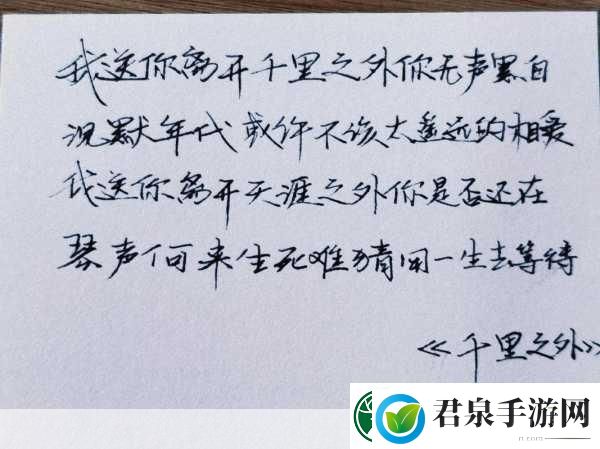 我送你离开千里之外你无声黑白
沉默年代或许不该太遥远的相爱
我送你离开天涯之外你是否还在
琴声何来生死难猜用一生去等待
《千里之外》
君泉手游网